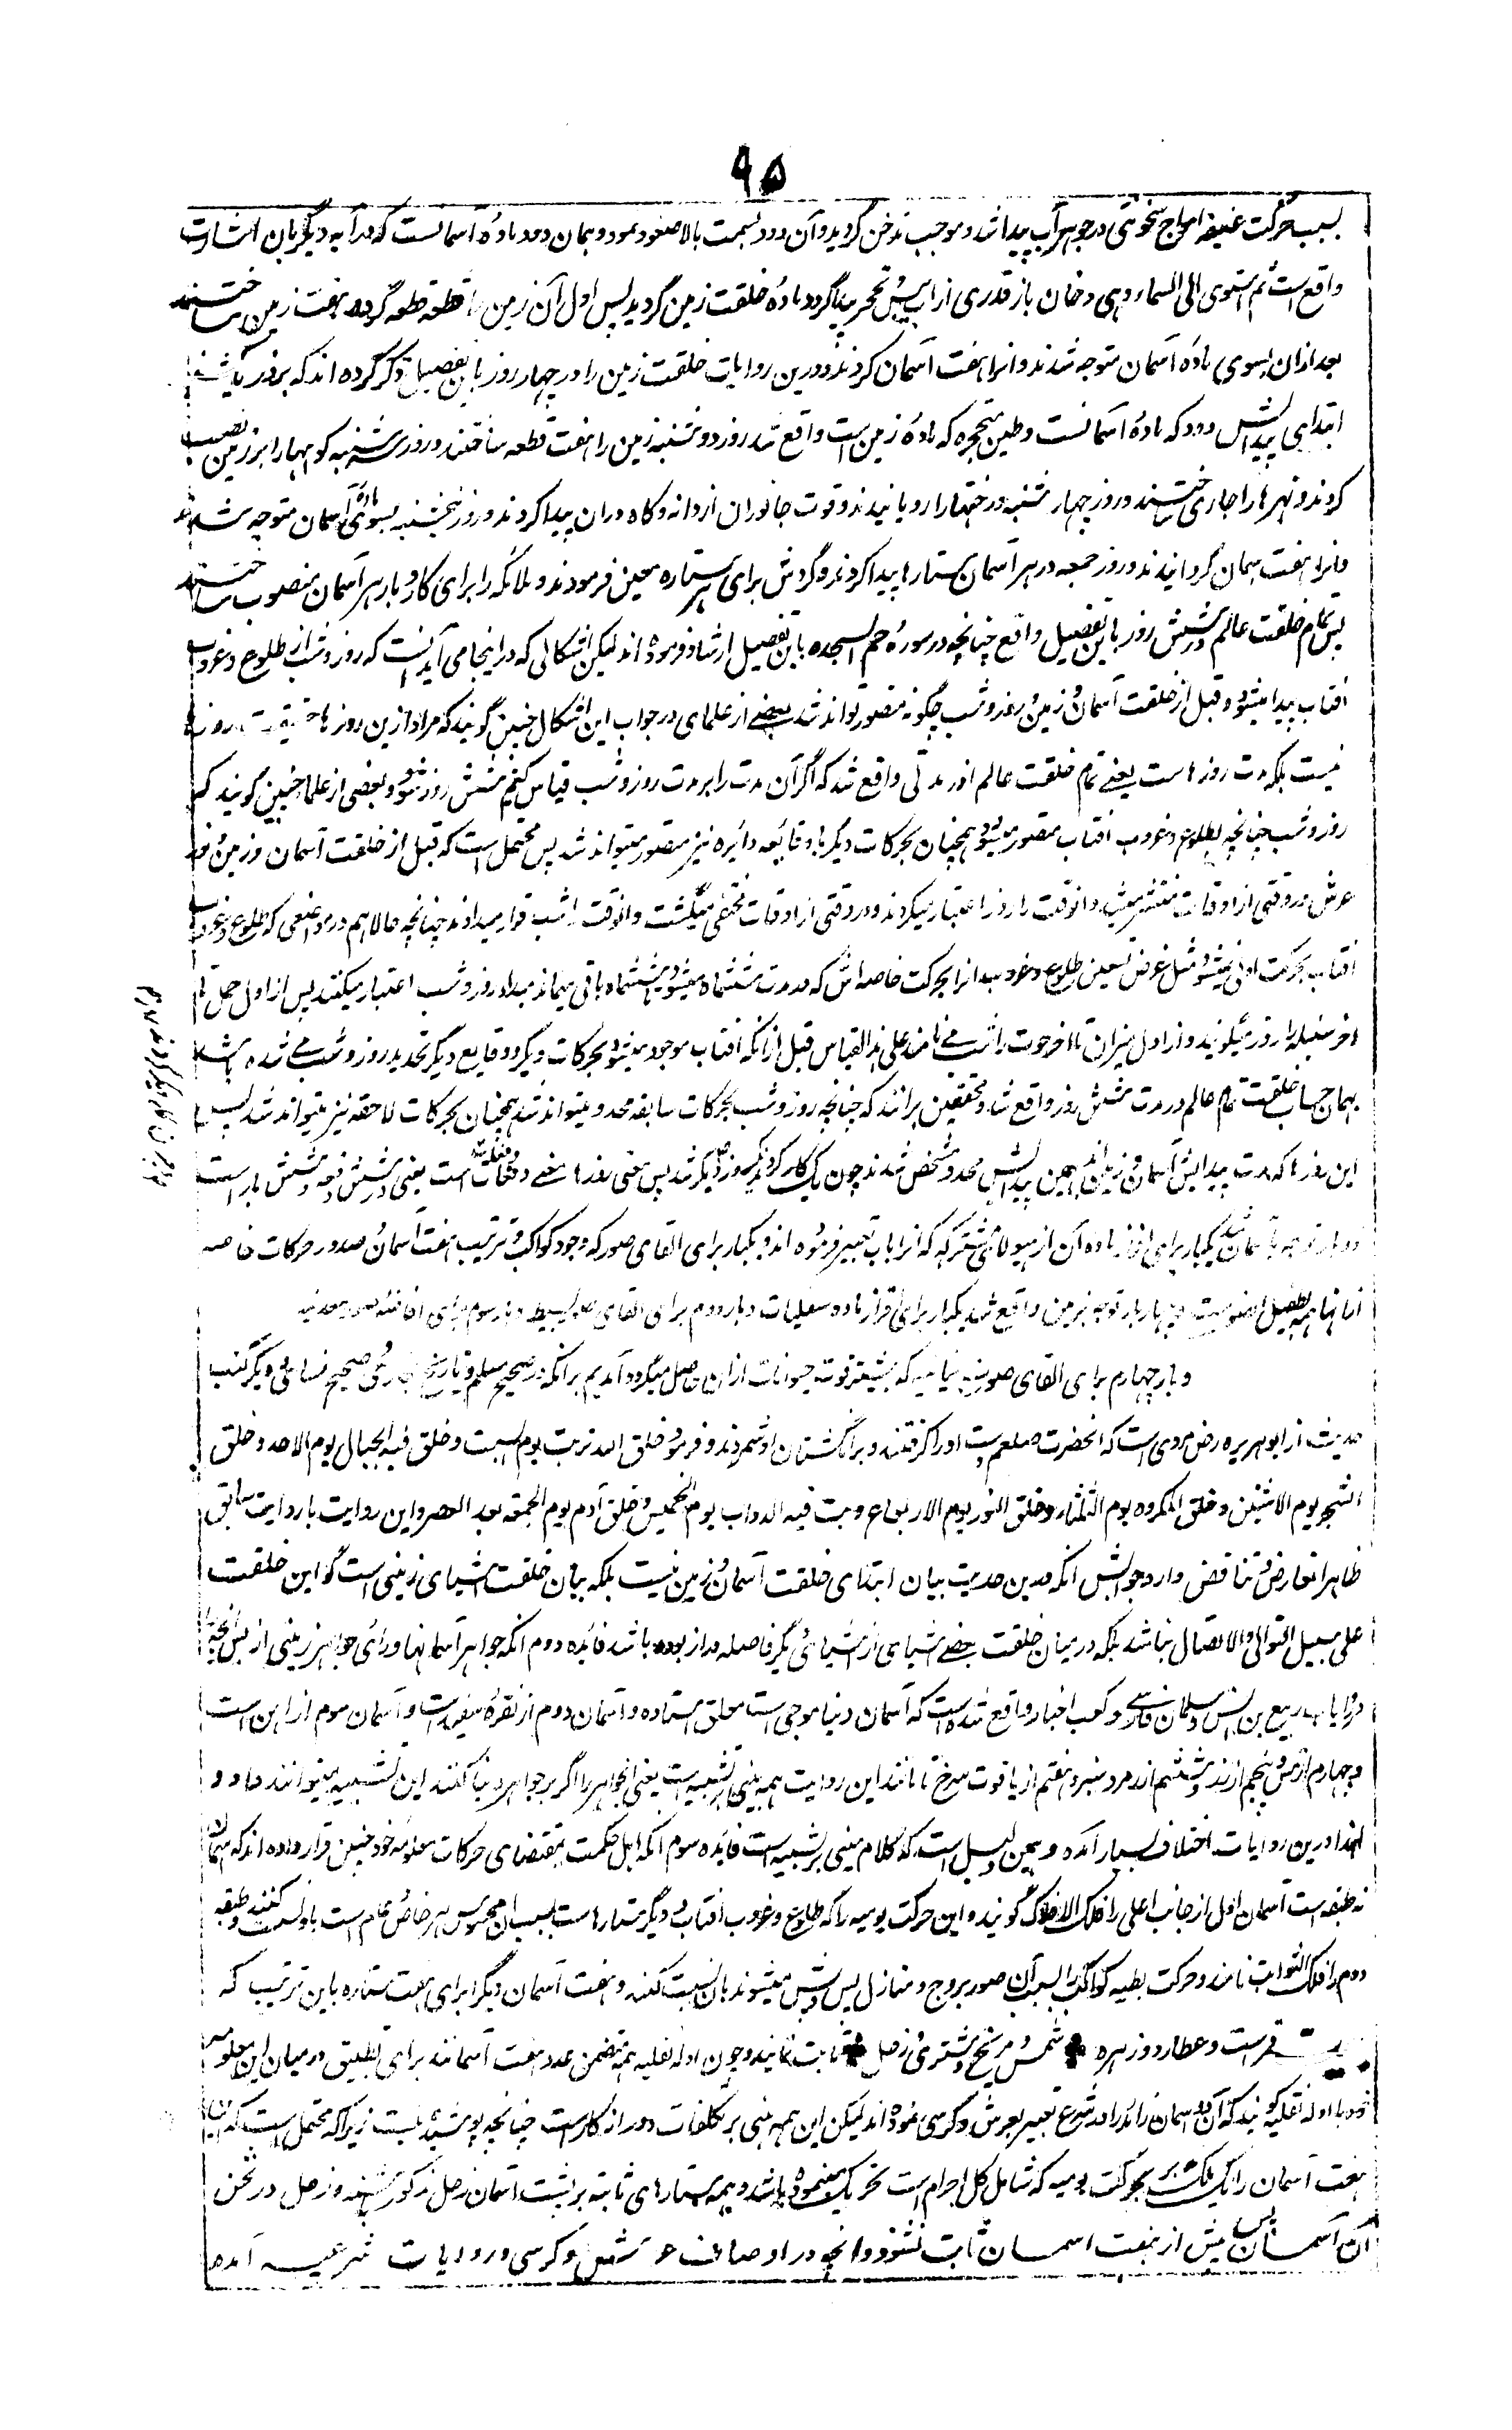 ۹۵
بسبب حرکت عنیفه امواج سخونتی در جوهر آب پیدا شد و موجب تدخن گردید و آن دود بسمت بالا صعود نمود و همان دود مادهٔ آسمانست که در آیه دیگر بآن اشارت
واقع است ثم استوی الی السماء و هی دخان باز قدری از آب یبس و تحجر پیدا کرد و مادهٔ خلقت زمین گردید پس اول آن زمین را قطعه قطعه کرده هفت زمین ساختند
بعد ازان بسوی مادهٔ آسمان متوجه شدند و آنرا هفت آسمان کردند و درین روایات خلقت زمین را در چهار روز باین تفصیل ذکر کرده اند که بروز یکشنبه
ابتدای پیدایش دود که مادهٔ آسمانست و طین متحجره که مادهٔ زمین است واقع شد روز دوشنبه زمین را هفت قطعه ساختند و روز سه شنبه کوهها را بر زمین نصب
کردند و نهرها را جاری ساختند و روز چهار شنبه درختها را رویانیدند و قوت جانوران از دانه و کاه دران پیدا کردند و روز پنجشنبه بسوی مادهٔ آسمان متوجه شدند
و آنرا هفت آسمان گردانیدند و روز جمعه در هر آسمان ستارها پیدا کردند و گردش برای هر ستاره معین فرمودند و ملائکه را برای کار و بار هر آسمان منصوب ساختند
پس تمام خلقت عالم در شش روز باین تفصیل واقع چنانچه در سورهٔ حم السجده باین تفصیل ارشاد فرموده اند لیکن اشکالی که در اینجا می آید آنست که روز و شب از طلوع و غروب
آفتاب پیدا میشود و قبل از خلقت آسمان و زمین روز و شب چگونه متصور تواند شد بعضے از علمای در جواب این اشکال چنین گویند که مراد ازین روزها حقیقت روزها
نیست بلکه مدت روزهاست یعنے تمام خلقت عالم در مدتی واقع شد که اگر آن مدت را بر مدت روز و شب قیاس کنیم شش روز شود و بعضی از علما چنین گویند که
روز و شب چنانچه بطلوع و غروب آفتاب متصور میشود همچنان بحرکات دیگر یا وقایعه دایره نیز متصور میتواند شد پس محتمل است که قبل از خلقت آسمان و زمین نور
عرش در وقتی از اوقات منتشر میشد و آنوقت را روز اعتبار میکردند و در وقتی از اوقات مختفی میگشت و آنوقت را شب قرار میدادند چنانچه حالا هم در مواضعی که طلوع و غروب
آفتاب بحرکت اولی نمیشود مثل عرض تسعین طلوع و غروب آنرا بحرکت خاصه اش که در مدت ششماه میشود و ششماه باقی میماند مبداء روز و شب اعتبار میکنند پس از اول حمل تا
آخر سنبله را روز میگویند و از اول میزان تا آخر حوت را شب می نامند علی هذا القیاس قبل ازانکه آفتاب موجود میشود بحرکات دیگر و وقایع دیگر تحدید روز و شب مے شده باشد
بهمان حساب خلقت تمام عالم در مدت شش روز واقع شد و محققین برانند که چنانچه روز و شب بحرکات سابقه محدود میتواند شد همچنان بحرکات لاحقه نیز میتواند شد پس
این روزها که مدت پیدایش آسمان و زمین اند بهمین پیدایش محدود و مشخص شدند چون یک کار کردند یکروز دیگر شد پس معنی روزها معنے دفعات است یعنی در شش دفعه و شش بار است
دو بار توجه بآسمان شد یکبار برای مادهٔ آن از هیولای مشترکه که آنرا بآب تعبیر فرموده اند و یکبار برای القای صور که وجود کواکب و ترتیب هفت آسمان و صدور حرکات خاصه
و چهار بار توجه بزمین واقع شد یکبار برای افراز ماده سفلیات و بار دوم برای القای صور بسیط و بار سوم برای افاضه صور معدنیه
و بار چهارم برای القای صور نباتیه که بیشتر قوت حیوانات ازان حاصل میگردد آمدیم برانکه در صحیح مسلم و تاریخ بخاری و صحیح نسائی و دیگر کتب
حدیث از ابو هریره رض مروی است که آنحضرت صلعم دست او را گرفتند و بر انگشتان او شمردند و فرمودند خلق الله تربت یوم السبت و خلق فیه الجبال یوم الاحد و خلق
الشجر یوم الاثنین و خلق المکروه یوم الثلثاء و خلق النور یوم الاربعاء و بث فیه الدواب یوم الخمیس و خلق آدم یوم الجمعه بعد العصر و این روایت با روایت سابق
ظاهرا تعارض و تناقض دارد جوابش آنکه درین حدیث بیان ابتدای خلقت آسمان و زمین نیست بلکه بیان خلقت اشیای زمینی است گو این خلقت
علی سبیل التوالی و الاتصال نباشد بلکه درمیان خلقت بعضے اشیای از اشیای دیگر فاصله دراز بوده باشد فائده دوم آنکه جواهر آسمانها ورای جواهر زمینی از پس آنچه
در روایات ربیع بن انس و سلمان فارسی و کعب احبار واقع شده است که آسمان دنیا موجی است معلق استاده و آسمان دوم از نقرهٔ سفید است و آسمان سوم از آهن است
و چهارم از مس و پنجم از زر و ششم از زمرد سبز و هفتم از یاقوت سرخ تا مانند این روایت همه مبنی بر تشبیه است یعنی آنجواهر را اگر بر جواهر دنیا کنند این تشبیه میتوانند داد و
لهذا درین روایات اختلاف بسیار آمده و همین دلیل است که کلام مبنی بر تشبیه است فائده سوم آنکه اهل حکمت بمقتضای حرکات معلومهٔ خود چنین قرار داده اند که آسمان
نه طبقه است آسمان اول از جانب اعلی را فلک الافلاک گویند و این حرکت یومیه را که طلوع و غروب آفتاب و دیگر ستارهاست بسبب آن محسوس هر خاص و عام است باو نسبت کنند و طبقه
دوم را فلک الثوابت نامند و حرکت بطیه کواکب را که بسبب آن صور بروج و منازل پس و پیش میشوند بآن نسبت کنند و هفت آسمان دیگر را برای هفت ستاره باین ترتیب که
قمر است و عطارد و زهره شمس و مریخ و مشتری و زحل ثابت نمایند و چون ادله نقلیه همه متضمن عدد هفت آسمانند برای تطبیق درمیان این معلوم
خود با ادله نقلیه گویند که آن دو آسمان زائد را در شرع تعبیر بعرش و کرسی نموده اند لیکن این همه مبنی بر تکلفات دور از کار است چنانچه پوشیده نیست زیرا که محتمل است که این
هفت آسمان را یک بحرکت یومیه که شامل کل اجرام است تحریک مینموده باشد و همه ستارهای ثابته بر پشت آسمان زحل مذکور باشند و زحل در ثخن
آن آسمان پس بیش از هفت آسمان ثابت نشود و آنچه در اوصاف عرش و کرسی در روایات شرعیه آمده